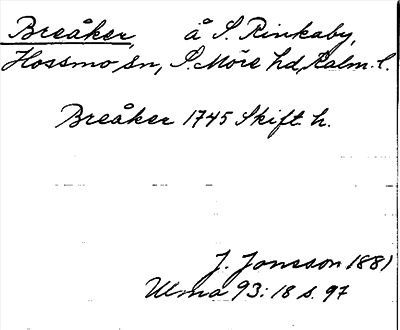 Breåker, å S. Rinkaby,
Hossmo sn, S. Möre hd, Kalm. l.
Breåker 1745 Skift. h.
J. Jonsson 1881
Ulma 93:18 s. 97